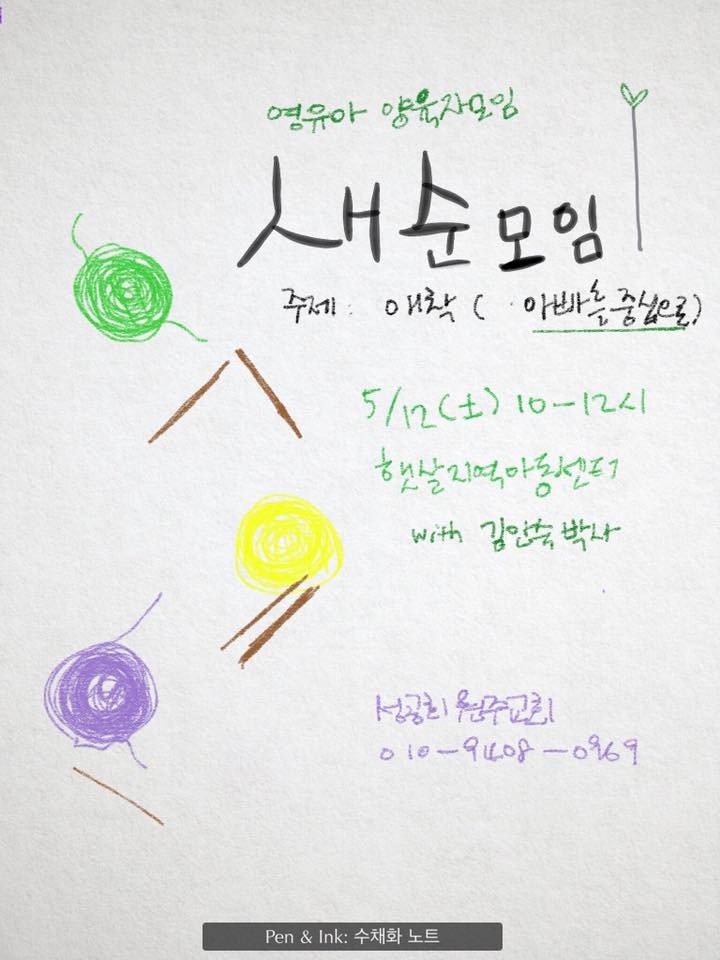 영유아 양육자모임
새순모임
주제: 애착 (아빠를 중심으로)
5/12(土) 10-12시
햇살지역아동센터
with 김인숙박사
성공회원주교회
010-9408-0969
Pen & Ink: 수채화 노트